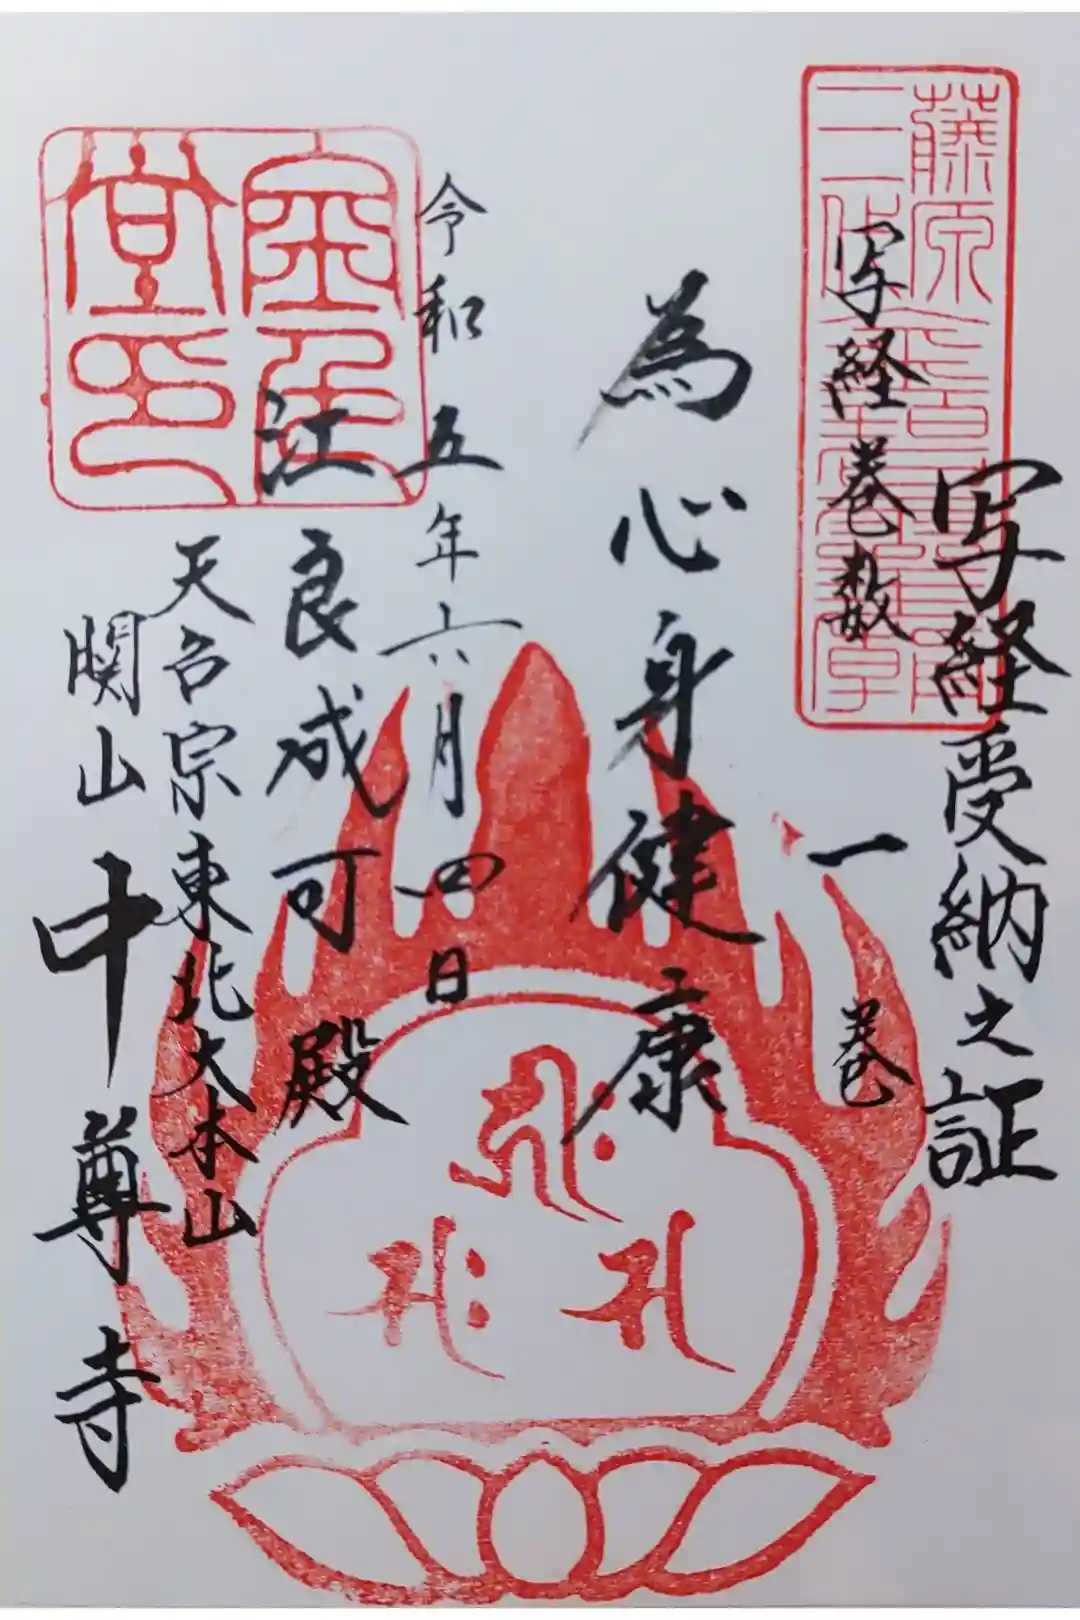 写経受納之証
写経巻数 一巻
為心身健康
令和五年六月四日
江良成可殿
天台宗東北大本山
関山中尊寺
金色堂印